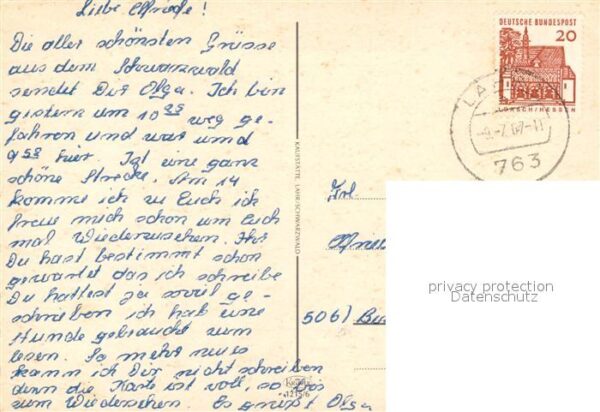 Liebe Elfriede!
Die aller schönsten Grüsse
aus dem Schwarzwald
sendet Dir Olga. Ich bin
gestern um 10 25 weg ge-
fahren und war umd
9 58 hier. Ist eine ganz
schöne Strecke. Am 14
komme ich zu Euch ich
freue mich schon um Euch
mal Wiederzusehen.
Du hast bestimmt schon
gewartet das ich schreibe
Du hattest ja soviel ge-
schrieben ich hab eine
Stunde gebraucht zum
lesen. So mehr neues
kann ich Dir nicht schreiben
denn die Karte ist voll, so Bis
zum Wiedersehen Es grüsst Olga
KAUSTÄTTE, LAHR/SCHWARZWALD
DEUTSCHE BUNDESPOST
20
LORSCH/HESSEN
763
Frl.
506)
privacy protection
Datenschutz